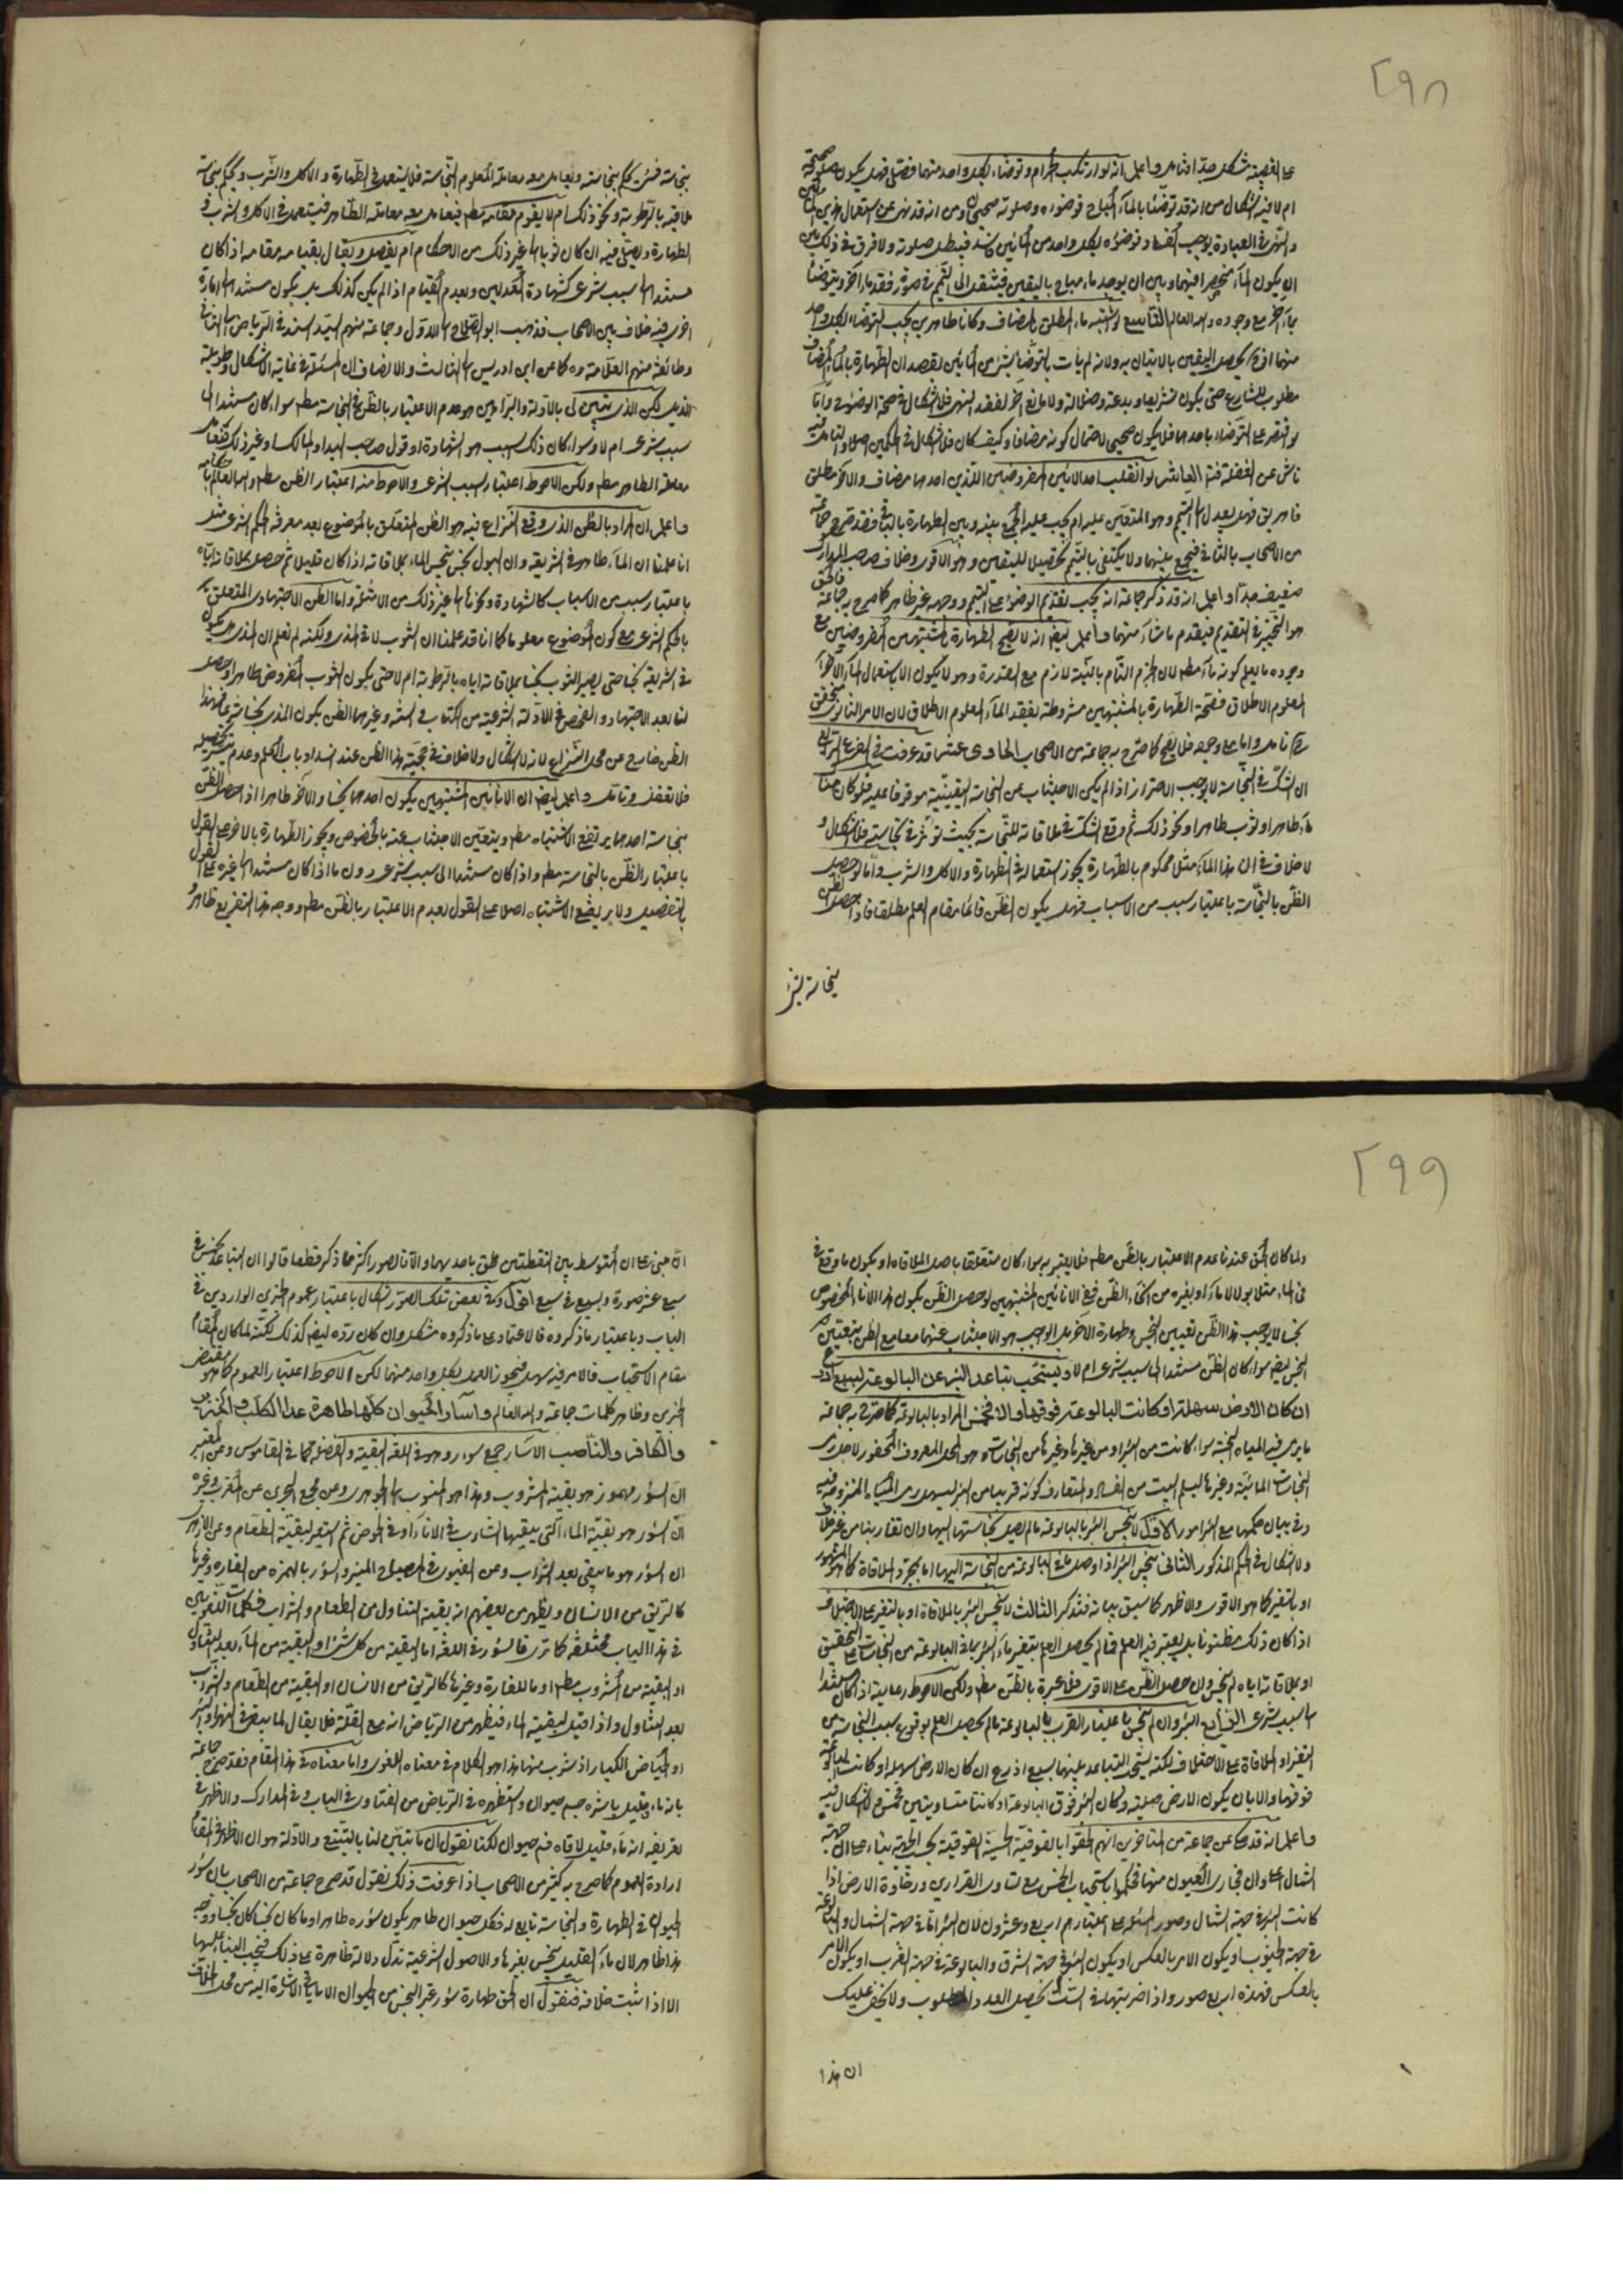 ٢٩٨
على الغصبية مشكل جدا فتأمل واعلم انه لو ارتكب الحرام وتوضاء بكل واحد منهما فصلى فهل يكون صلوته صحيحة
ام لا فيه اشكال من انه قد توضئا بالماء المباح فوضوءه وصلوته صحيحان ومن انه قد نهى عن استعمال هذين المائين
والنهى فى العبادة يوجب الفساد فوضوءه بكل واحد من المائين فاسد فيبطل صلوته ولا فرق فى ذلك بين
ان يكون الماء منحصرا فيهما وبين ان يوجد ماء مباح باليقين فينتقل الى التيمم فى صورة فقد ماء آخر ويتوضئا
بماء آخر مع وجوده والله العالم التاسع لو اشتبه ماء المطلق بالمضاف وكانا طاهرين يجب التوضاء بكل واحد
منهما اذ به يحصل اليقين بالاتيان به ولانه لم يأت بالتوضأ بشئ من المائين بقصد ان الطهارة بالماء المضاف
مطلوب للشارع حتى يكون تشريعا وبدعة وضلالة ولا مانع آخر لفقد النهى فلا اشكال فى صحة الوضوء واما
لو اقتصر على التوضاء باحدهما فلا يكون صحيحا لاحتمال كونه مضافا وكيف كان فلا اشكال فى الحكمين اصلا والتأمل فيه
ناش عن الغفلة فتنبه العاشر لو انقلب احد المائين المفروضين اللذين احدهما مضاف والاخر مطلق
فاهريق فهل يعدل الى التيمم وهو المتعين عليه ام يجب عليه الجمع بينه وبين الطهارة بالباقى فقد صرح جماعة
من الاصحاب بالثانى فيجمع بينهما ولا يكتفى بالتيمم تحصيلا لليقين وهو الاقوى وخلاف صاحب المدارك
ضعيف جدا واعلم انه قد ذكر جماعة انه يجب تقديم الوضوء على التيمم ووجهه غير ظاهر كما صرح به جماعة فالحق
هو التخيير فى التقديم فيقدم ما شاء منهما واعلم ايضا انه لا تصح الطهارة بالمشتبهين المفروضين مع
وجود ما يعلم كونه ماء مطلقا لان الجزم التام بالنية لازم مع القدرة وهو لا يكون الا باستعمال الماء الآخر
المعلوم الاطلاق فصحة الطهارة بالمشتبهين مشروطة بفقد الماء المعلوم الاطلاق لان الامر الثانى متحقق
ان الشك فى النجاسة لا يوجب الاحتراز اذا لم يكن الاجتناب عن النجاسة اليقينية موقوفا عليه فلو كان هنا
ماء طاهر او ثوب طاهر او نحو ذلك ثم وقع الشك فى ملاقاته للنجاسة بحيث تؤثر فى نجاسته فلا اشكال و
لا خلاف فى ان هذا الماء مثلا محكوم بالطهارة يجوز استعماله فى الطهارة والاكل والشرب واما لو حصل
الظن بالنجاسة باعتبار سبب من الاسباب فهل يكون الظن قائما مقام العلم مطلقا فاذا حصل الظن
بنجاسة شئ
بنجاسة شئ يحكم بنجاسته ويعامل معه معاملة المعلوم النجاسة فلا يستعمل فى الطهارة والاكل والشرب ويحكم بنجاسة
ملاقيه بالرطوبة ونحو ذلك ام لا يقوم مقامه مطلقا فيعامل معه معاملة الطاهر فيستعمل فى الاكل والشرب و
الطهارة ويصلى فيه ان كان ثوبا الى غير ذلك من الاحكام ام يفصل ويقال بقيامه مقامه اذا كان
مستندا الى سبب شرعى كشهادة العدلين وبعدم القيام اذا لم يكن كذلك بل يكون مستندا الى امارة
اخرى فيه خلاف بين الاصحاب فذهب ابو الصلاح الى الاول وجماعة منهم السيد السند فى الرياض الى الثانى
وطائفة منهم العلامة ره كما عن ابن ادريس الى الثالث والانصاف ان المسئلة فى غاية الاشكال وطويلة
الذيل لكن الذى يتبين لى بالادلة والبراهين هو عدم الاعتبار بالظن فى النجاسة مطلقا سواء كان مستندا الى
سبب شرعى ام لا وسواء كان ذلك السبب هو الشهادة او قول صاحب اليد او المالك او غير ذلك فيعامل
معاملة الطاهر مطلقا ولكن الاحوط اعتبار السبب الشرعى والاحوط منه اعتبار الظن مطلقا والله العالم
واعلم ان المراد بالظن الذى وقع النزاع فيه هو الظن المتعلق بالموضوع بعد معرفة الحكم الشرعى مثل
انا علمنا ان الماء طاهر فى الشريعة وان البول نجس ينجس الماء بملاقاته اذا كان قليلا ثم حصل بملاقاته اياه
باعتبار سبب من الاسباب كالشهادة ونحوها الى غير ذلك من الامثلة واما الظن الاجتهادى المتعلق
بالحكم الشرعى مع كون الموضوع معلوما كما انا قد علمنا ان الثوب لاقى المذى ولكنه لم نعلم ان المذى هل يكون
فى الشريعة نجسا حتى يصير الثوب نجسا بملاقاته اياه بالرطوبة ام لا حتى يكون الثوب المفروض طاهرا وحصل
لنا بعد الاجتهاد والفحص فى الادلة الشرعية من الكتاب والسنة وغيرهما الظن بكون المذى نجسا شرعا فهذا
الظن خارج عن محل النزاع لانه لا اشكال ولا خلاف فى حجية هذا الظن عند انسداد باب العلم وعدم تيسر تحصيله
فلا تغفل وتأمل واعلم ايضا ان الانائين المشتبهين يكون احدهما نجسا والآخر طاهرا اذا حصل الظن
بنجاسة احدهما يرتفع الاشتباه مطلقا ويتعين الاجتناب عنه بالخصوص ويجوز الطهارة بالاخر على القول
باعتبار الظن بالنجاسة مطلقا واذا كان مستندا الى سبب شرعى دون ما اذا كان مستندا الى غيره على القول
بالتفصيل ولا يرتفع الاشتباه اصلا على القول بعدم الاعتبار بالظن مطلقا ووجه هذا التفريع ظاهر
٢٩٩
ولما كان الحق عندنا عدم الاعتبار بالظن مطلقا فلا يعتبر به سواء كان متعلقا باصل الملاقاة او بكون ما وقع فى
فى الماء مثلا بولا لا ماء او بغيره من انحاء الظن ففى الانائين المشتبهين لو حصل الظن بكون هذا الاناء المخصوص
نجسا لا يوجب هذا الظن تعيين النجس وطهارة الاخر بل الواجب هو الاجتناب عنهما معا مع الظن بتعيين
النجس ايضا سواء كان الظن مستندا الى سبب شرعى ام لا ويستحب تباعد البئر عن البالوعة بسبع اذرع
ان كان الارض سهلة او كانت البالوعة فوقها والا فخمس المراد بالبالوعة كما صرح به جماعة
ما يرمى فيه المياه النجسة سواء كانت من البئر او من غيرها وغيرها من النجاسات وهو المحل المعروف المحفور لاجل رمى
النجاسات المائية وغيرها
وفى بيان حكمها مع البئر امور الاول لا تنجس البئر بالبالوعة ما لم يصل نجاستها اليها وان تقاربتا من غير خلاف
ولا اشكال فى الحكم المذكور الثانى تنجس البئر اذا وصل ما فى البالوعة من النجاسة اليها اما بمجرد الملاقاة كما هو المشهور
او بالتغير كما هو الاقوى والاظهر كما سبق بيانه فتذكر الثالث لا تنجس البئر بالملاقاة او بالتغير على الاختلاف
اذا كان ذلك مظنونا بل يعتبر فيه العلم فما لم يحصل العلم بتغير ماء البئر بما فى البالوعة من النجاسات على التحقيق
او بملاقاته اياه لم تنجس وان حصل الظن على الاقوى فلا عبرة بالظن مطلقا ولكن الاحوط رعايته اذا كان مستندا
الى سبب شرعى الرابع البئر وان لم تنجس باعتبار القرب بالبالوعة ما لم يحصل العلم بوقوع سبب النجاسة من
التغير او الملاقاة على الاختلاف لكنه يستحب التباعد بينهما بسبع اذرع ان كان الارض سهلة او كانت البالوعة
فوقها والا بان يكون الارض صلبة وكان البئر فوق البالوعة او كانتا متساويتين فخمس ولا اشكال فيه
واعلم انه قد حكى عن جماعة من المتأخرين انهم الحقوا بالفوقية الحسية الفوقية بحسب الجهة بناء على ان جهة
الشمال اعلى وان مجارى العيون منها فحكموا باستحباب الخمس مع تساوى القرارين ورخاوة الارض اذا
كانت البئر فى جهة الشمال وصور المسئلة على اعتبارهم اربع وعشرون لان البئر اما فى جهة الشمال والبالوعة
فى جهة الجنوب او يكون الامر بالعكس او يكون البئر فى جهة الشرق والبالوعة فى جهة الغرب او يكون الامر
بالعكس فهذه اربع صور واذا ضربتها فى الست يحصل العدد المطلوب ولا يخفى عليك
ان هذا
ان هذا مبنى على ان المتوسط بين النقطتين ملحق باحديهما والا فالصور اكثر مما ذكر قطعا قالوا ان التباعد بخمس فى
سبع عشر صورة وبسبع فى سبع اقول وفى بعض تلك الصور اشكال باعتبار عموم الخبرين الواردين فى
الباب وباعتبار ما ذكروه فالاعتماد على ما ذكروه مشكل وان كان رده ايضا كذلك لكنه لما كان المقام
مقام الاستحباب فالامر فيه سهل فيجوز العمل بكل واحد منهما لكن الاحوط اعتبار العموم كما هو مقتضى
الخبرين وظاهر كلمات جماعة والله العالم واسآر الحيوان كلها طاهرة عدا الكلب والخنزير
والكافر والناصب الاسآر جمع سؤر وهو فى اللغة البقية والفضلة كما فى القاموس وعن المعتبر
ان السؤر مهموز هو بقية المشروب وهذا هو المنسوب الى الجوهرى وعن مجمع البحرين عن المغرب وغيره
ان السؤر هو بقية الماء التى يبقيها الشارب فى الاناء او فى الحوض ثم استعير لبقية الطعام وعن الازهرى
ان السؤر هو ما يبقى بعد الشراب وعن الفيومى فى المصباح المنير والسؤر بالهمزة من الفارة وغيرها
كالريق من الانسان ويظهر من بعضهم انه بقية المتناول من الطعام والشراب فكلمات اللغويين
فى هذا الباب مختلفة كما ترى فالسؤر فى اللغة اما البقية من كل شئ او البقية من الماء بعد التناول
او البقية من المشروب مطلقا او ما للفارة وغيرها كالريق من الانسان او البقية من الطعام والشراب
بعد التناول واذا قيد لبقية الماء فيظهر من الرياض انه مع القلة فلا يقال لما يبقى فى النهر او البئر
او الحياض الكبار اذ شرب منها هذا هو الكلام فى معناه اللغوى واما معناه فى هذا المقام فقد صرح جماعة
بانه ماء قليل باشره جسم حيوان واستظهره فى الرياض من الفتاوى فى الباب وفى المدارك والاظهر فى
تعريفه انه ماء قليل لاقاه فم حيوان لكنا نقول ان ما تبين لنا بالتتبع والادلة هو ان الاظهر فى المقام
ارادة العموم كما صرح به كثير من الاصحاب اذا عرفت ذلك نقول قد صرح جماعة من الاصحاب بان سؤر
الحيوان فى الطهارة والنجاسة تابع له فكل حيوان طاهر يكون سؤره طاهرا وما كان نجسا كان نجسا ووجه
هذا ظاهر لان ماء القليل ينجس بغيرها والاصول الشرعية تدل دلالة ظاهرة على ذلك فيجب البناء عليها
الا اذا ثبت خلافه فنقول ان الحق طهارة سؤر غير النجس من الحيوان الا ما يأتى الاشارة اليه من محل الخلاف